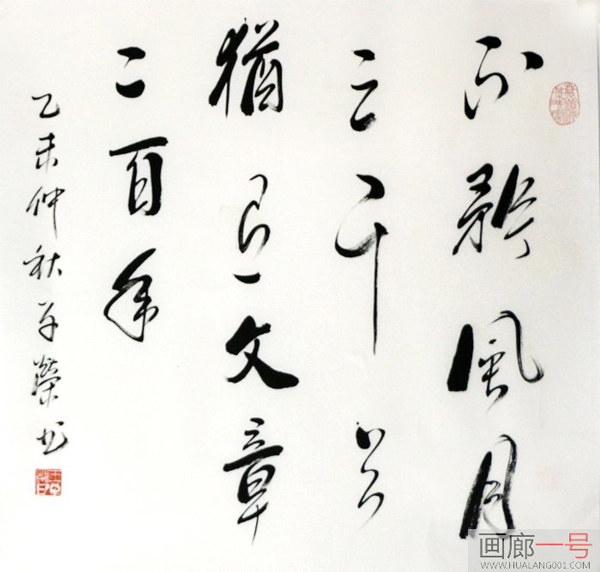 不矜風月
三千首
猶文章
二百年
乙未仲秋榮书
画廊一号
WWW.HUALANG001.COM